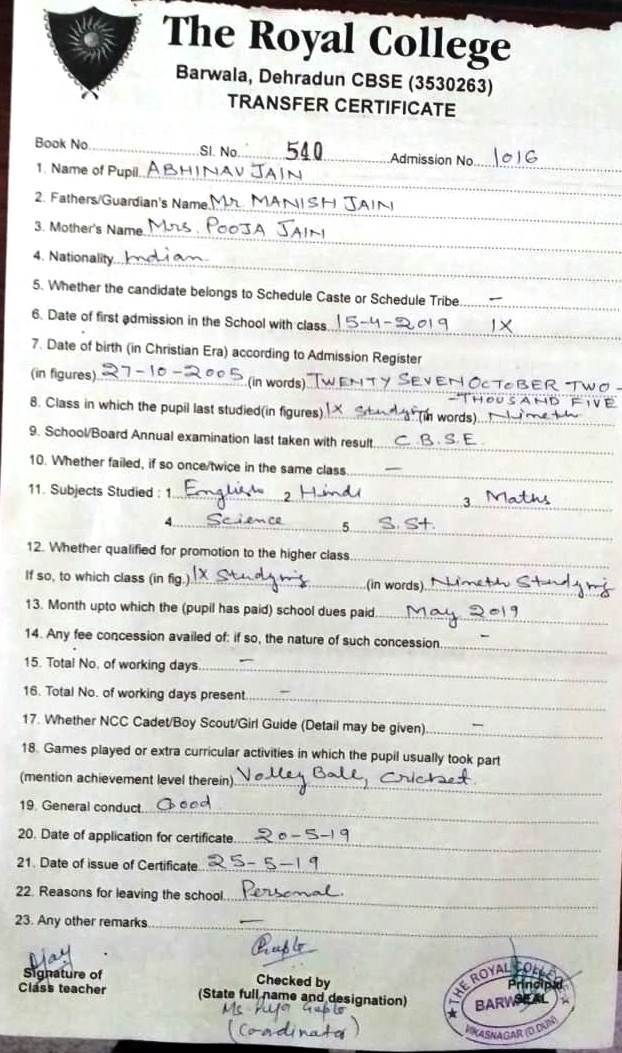 The Royal College
Barwala, Dehradun CBSE (3530263)
TRANSFER CERTIFICATE
Book No. Sl. No. 540 Admission No. 1016
1. Name of Pupil. ABHINAV JAIN
2. Fathers/Guardian's Name. Mr MANISH JAIN
3. Mother's Name Mrs. POOJA JAIN
4. Nationality. Indian
5. Whether the candidate belongs to Schedule Caste or Schedule Tribe. –
6. Date of first admission in the School with class. 15-4-2019 IX
7. Date of birth (in Christian Era) according to Admission Register
(in figures) 27-10-2005 (in words) TWENTY SEVEN OCTOBER TWO-
-THOUSAND FIVE
8. Class in which the pupil last studied(in figures) IX Studying (in words). Nineth
9. School/Board Annual examination last taken with result. C.B.S.E.
10. Whether failed, if so once/twice in the same class. –
11. Subjects Studied : 1. English 2 Hindi 3. Maths
4. Science 5. S.St.
12. Whether qualified for promotion to the higher class
If so, to which class (in fig.) IX Studying (in words). Nineth Studying
13. Month upto which the (pupil has paid) school dues paid. May 2019
14. Any fee concession availed of: if so, the nature of such concession. –
15. Total No. of working days. –
16. Total No. of working days present. –
17. Whether NCC Cadet/Boy Scout/Girl Guide (Detail may be given). –
18. Games played or extra curricular activities in which the pupil usually took part
(mention achievement level therein) Volley Ball, Cricket.
19. General conduct. Good
20. Date of application for certificate. 20-5-19
21. Date of issue of Certificate. 25-5-19
22. Reasons for leaving the school. Personal.
23. Any other remarks. –
Signature of
Class teacher
Checked by
(State full name and designation)
Ms. Gupta
(Coordinator)
THE ROYAL COLLEGE
Principal
SEAL
VIKASNAGAR (D.DUN)